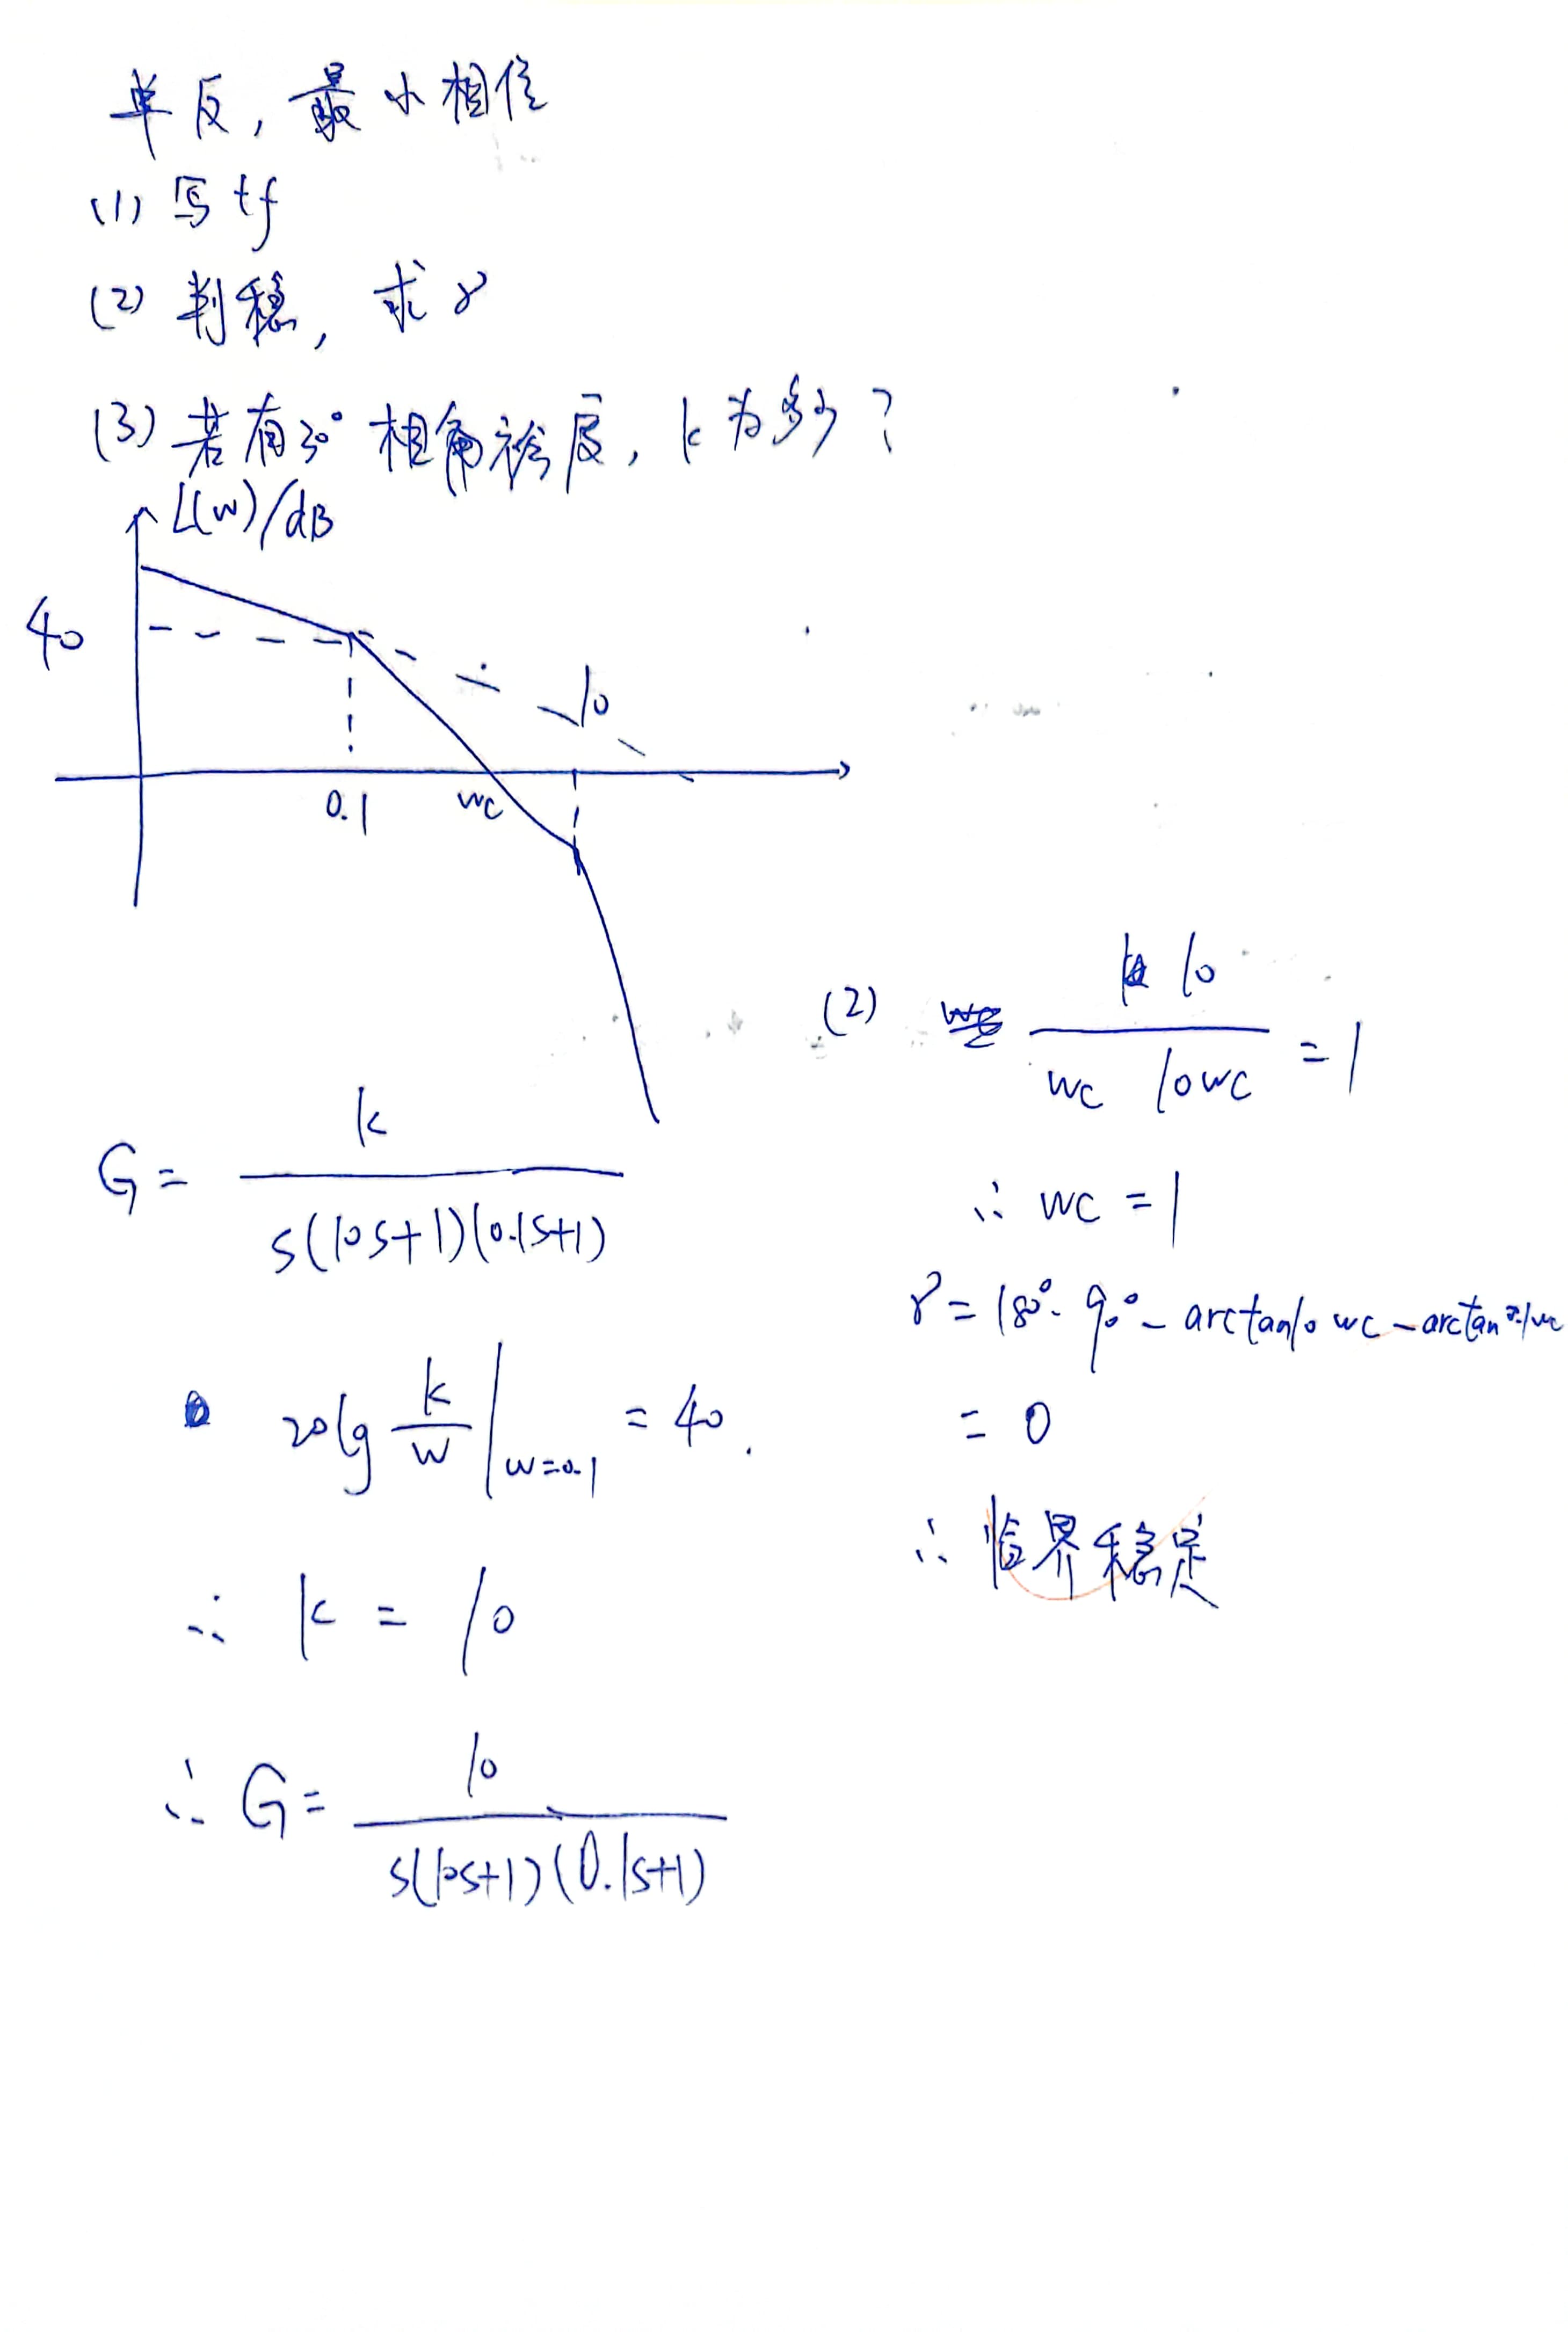 单反，最小相位
(1) 写tf
(2) 判稳，求γ
(3) 若有30°相角裕度，k为多少？
L(w)/dB
40
10
0.1 wc
G = k / s(10s+1)(0.1s+1)
20lg k/w |w=0.1 = 40.
∴ k = 10
∴ G = 10 / s(10s+1)(0.1s+1)
(2) 10 / wc 10wc = 1
∴ wc = 1
γ = 180° - 90° - arctan10wc - arctan0.1wc
= 0
∴ 临界稳定